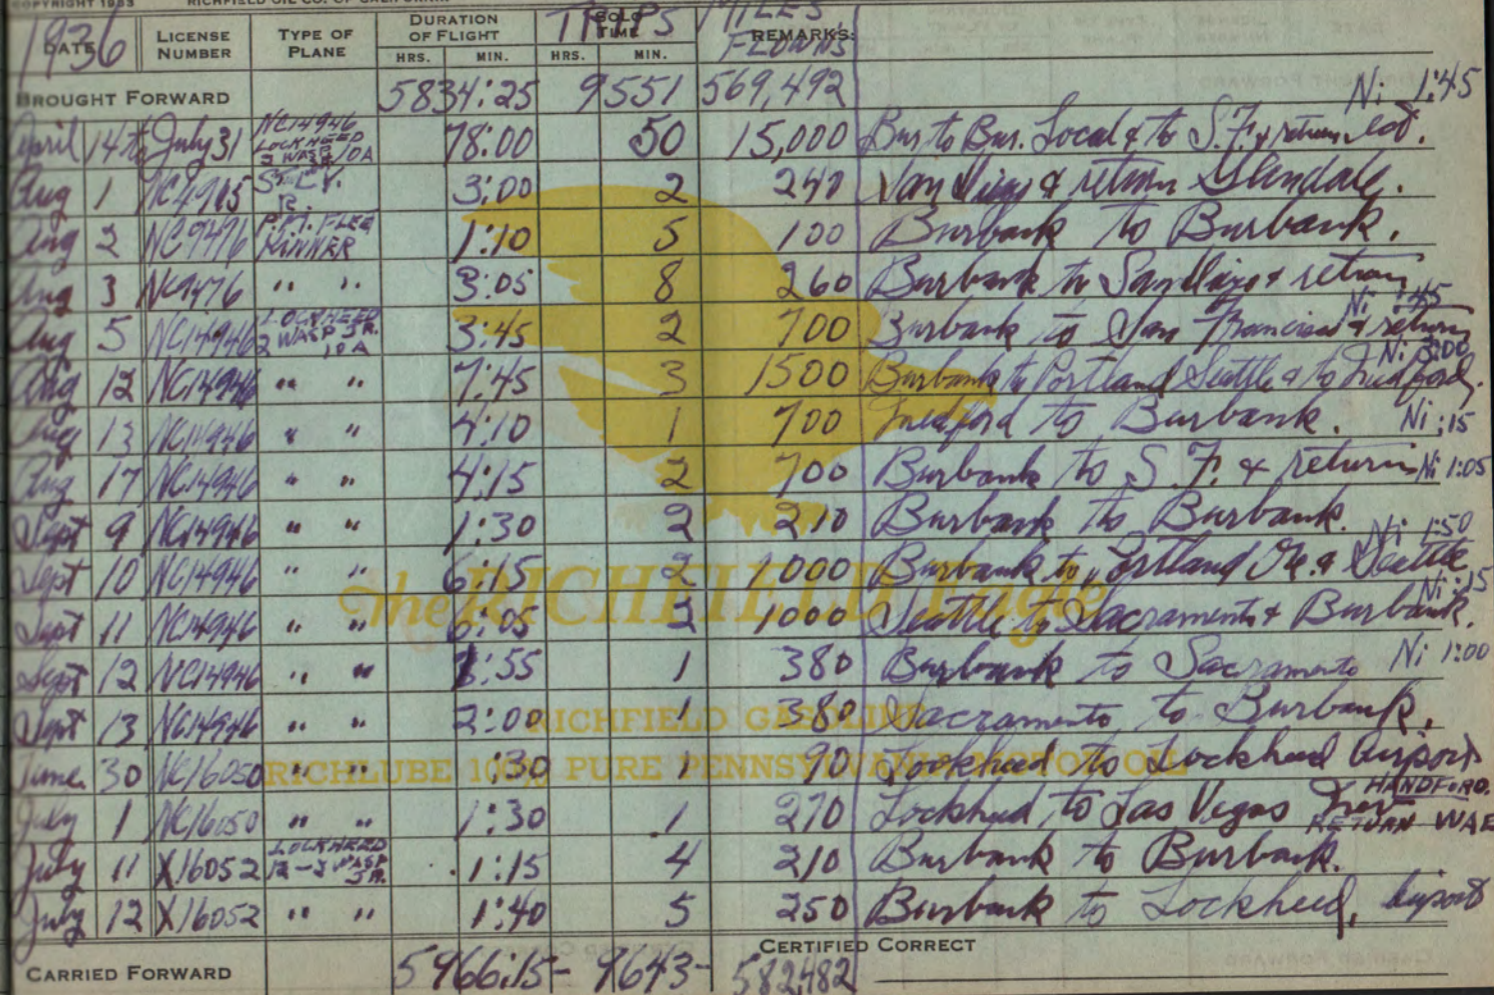 COPYRIGHT 1933 RICHFIELD OIL CO. OF CALIFORNIA
1936 DATE LICENSE NUMBER TYPE OF PLANE DURATION OF FLIGHT HRS. MIN. TRIPS SOLO TIME HRS. MIN. MILES FLOWN REMARKS:
BROUGHT FORWARD 5834:25 9551 569,492 Ni 1:45
April 14th July 31 NC14946 LOCKHEED 2 WASP JR 10A 78:00 50 15,000 Bur to Bur. Local & to S.F. & return
Aug 1 NC4915 R. 3:00 2 240 San Diego & return Glendale.
Aug 2 NC9476 P.M. FLEE KINNER 1:10 5 100 Burbank to Burbank.
Aug 3 NC9476 " " 3:05 8 260 Burbank to San Diego & return
Aug 5 NC14946 LOCKHEED 2 WASP JR. 10A 3:45 2 700 Burbank to San Francisco & return Ni 1:45
Aug 12 NC14946 " " 7:45 3 1500 Burbank to Portland Seattle & to Medford. Ni 3:00
Aug 13 NC14946 " " 4:10 1 700 Medford to Burbank. Ni :15
Aug 17 NC14946 " " 4:15 2 700 Burbank to S.F. & return Ni 1:05
Sept 9 NC14946 " " 1:30 2 210 Burbank to Burbank.
Sept 10 NC14946 " " 6:15 2 1000 Burbank to Portland Or. & Seattle Ni 1:50
Sept 11 NC14946 " " 6:05 2 1000 Seattle to Sacramento & Burbank. Ni :15
Sept 12 NC14946 " " :55 1 380 Burbank to Sacramento Ni 1:00
Sept 13 NC14946 " " 2:00 1 380 Sacramento to Burbank.
June 30 NC16050 " " :30 1 90 Lockheed to Lockheed Airport
July 1 NC16050 " " 1:30 1 270 Lockheed to Las Vegas HANDFORD. RETURN WAE
July 11 X16052 LOCKHEED 12-2 WASP JR. 1:15 4 210 Burbank to Burbank.
July 12 X16052 " " 1:40 5 250 Burbank to Lockheed, Airport
the RICHFIELD Eagle
RICHFIELD GASOLINE
RICHLUBE 100% PURE PENNSYLVANIA MOTOR OIL
CERTIFIED CORRECT
CARRIED FORWARD 5966:15- 9643- 582,482